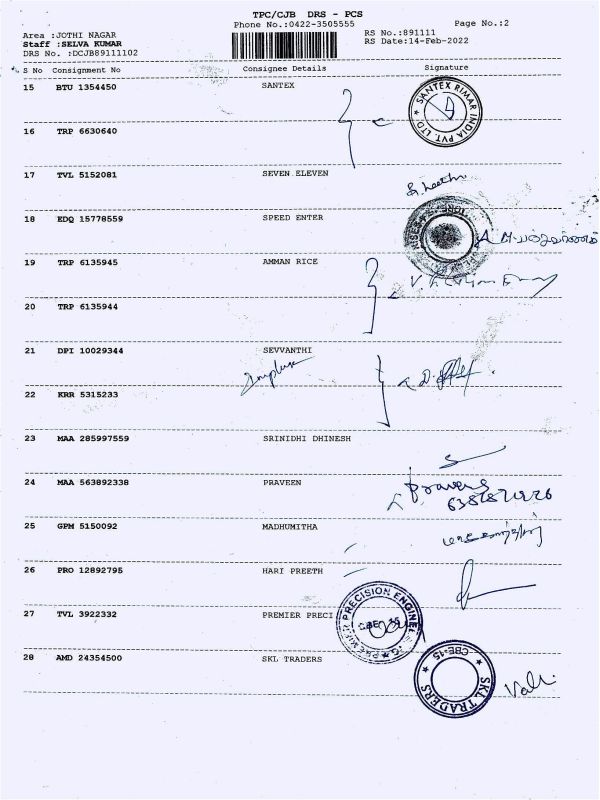 TPC/CJB DRS - PCS
Phone No.:0422-3505555
Page No.:2
Area :JOTHI NAGAR
RS No.:891111
Staff :SELVA KUMAR
RS Date:14-Feb-2022
DRS No. :DCJB89111102
S No Consignment No Consignee Details Signature
15 BTU 1354450 SANTEX
SANTEX RIMAR INDIA PVT. LTD.
16 TRP 6630640
17 TVL 5152081 SEVEN ELEVEN
18 EDQ 15778559 SPEED ENTER
19 TRP 6135945 AMMAN RICE
20 TRP 6135944
21 DPI 10029344 SEVVANTHI
22 KRR 5315233
23 MAA 285997559 SRINIDHI DHINESH
24 MAA 563892338 PRAVEEN
25 GPM 5150092 MADHUMITHA
26 PRO 12892795 HARI PREETH
27 TVL 3922332 PREMIER PRECI
PREMIER PRECISION ENGINEERING
28 AMD 24354500 SKL TRADERS
SKL TRADERS
CBE-15